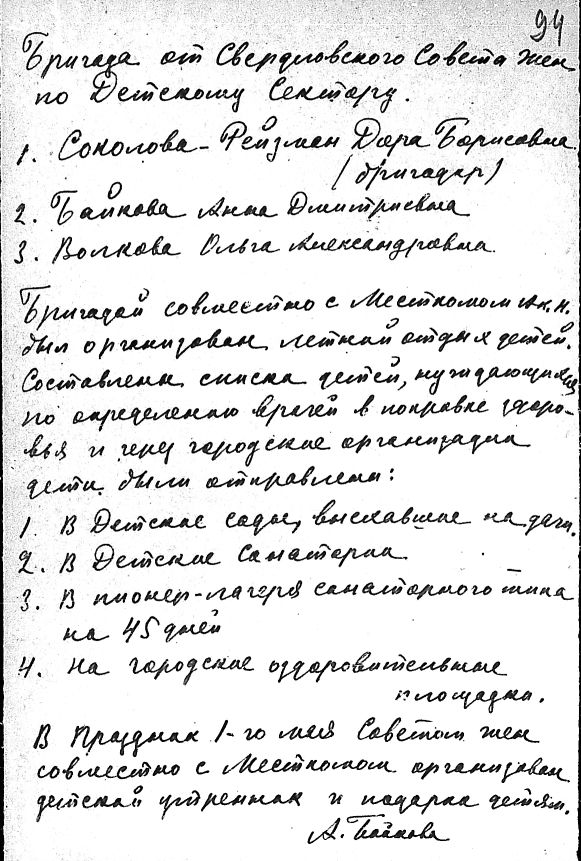 94
Бригада от Свердловского Совета жен
по Детскому Сектору.
1. Соколова-Рейзман Дора Борисовна
(бригадир)
2. Байкова Анна Дмитриевна
3. Волкова Ольга Александровна
Бригадой совместно с Месткомом Ак. Н.
был организован летний отдых детей.
Составлены списки детей, нуждающихся
по определению врачей в поправке здоро-
вья и через городские организации
дети были отправлены:
1. В Детские сады, выехавшие на дачи.
2. В Детские Санатории
3. В пионер-лагеря санаторного типа
на 45 дней
4. На городские оздоровительные
площадки.
В Праздник 1-го мая Советом жен
совместно с Месткомом организован
детский утренник и подарки детям.
А. Байкова